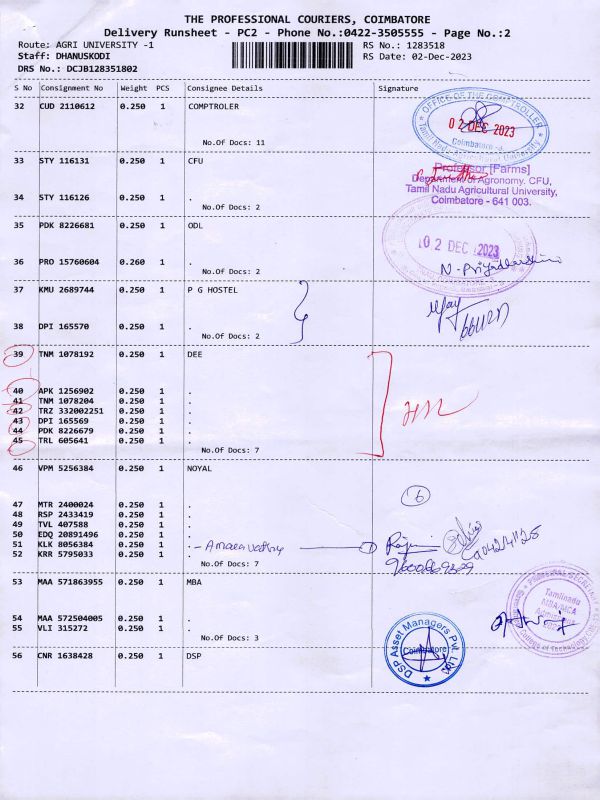 THE PROFESSIONAL COURIERS, COIMBATORE
Delivery Runsheet - PC2 - Phone No.:0422-3505555 - Page No.:2
Route: AGRI UNIVERSITY -1 RS No.: 1283518
Staff: DHANUSKODI RS Date: 02-Dec-2023
DRS No.: DCJB128351802
S No Consignment No Weight PCS Consignee Details Signature
32 CUD 2110612 0.250 1 COMPTROLER
OFFICE OF THE COMPTROLLER
02 DEC 2023
Coimbatore -3.
Tamil Nadu Agricultural University
No.Of Docs: 11
33 STY 116131 0.250 1 CFU
Professor [Farms]
Department of Agronomy. CFU,
Tamil Nadu Agricultural University,
Coimbatore - 641 003.
34 STY 116126 0.250 1 .
No.Of Docs: 2
35 PDK 8226681 0.250 1 ODL
02 DEC 2023
36 PRO 15760604 0.260 1 .
N. Priyadharshini
No.Of Docs: 2
37 KMU 2689744 0.250 1 P G HOSTEL
38 DPI 165570 0.250 1 .
No.Of Docs: 2
39 TNM 1078192 0.250 1 DEE
40 APK 1256902 0.250 1 .
41 TNM 1078204 0.250 1 .
42 TRZ 332002251 0.250 1 .
43 DPI 165569 0.250 1 .
44 PDK 8226679 0.250 1 .
45 TRL 605641 0.250 1 .
No.Of Docs: 7
46 VPM 5256384 0.250 1 NOYAL
6
47 MTR 2400024 0.250 1 .
48 RSP 2433419 0.250 1 .
49 TVL 407588 0.250 1 .
50 EDQ 20891496 0.250 1 .
51 KLK 8056384 0.250 1 . 1
52 KRR 5795033 0.250 1 .
No.Of Docs: 7
53 MAA 571863955 0.250 1 MBA
Tamilnadu
MBA/MCA
54 MAA 572504005 0.250 1 .
55 VLI 315272 0.250 1 .
No.Of Docs: 3
56 CNR 1638428 0.250 1 DSP
DSP Asset Managers Pvt. Ltd.
Coimbatore